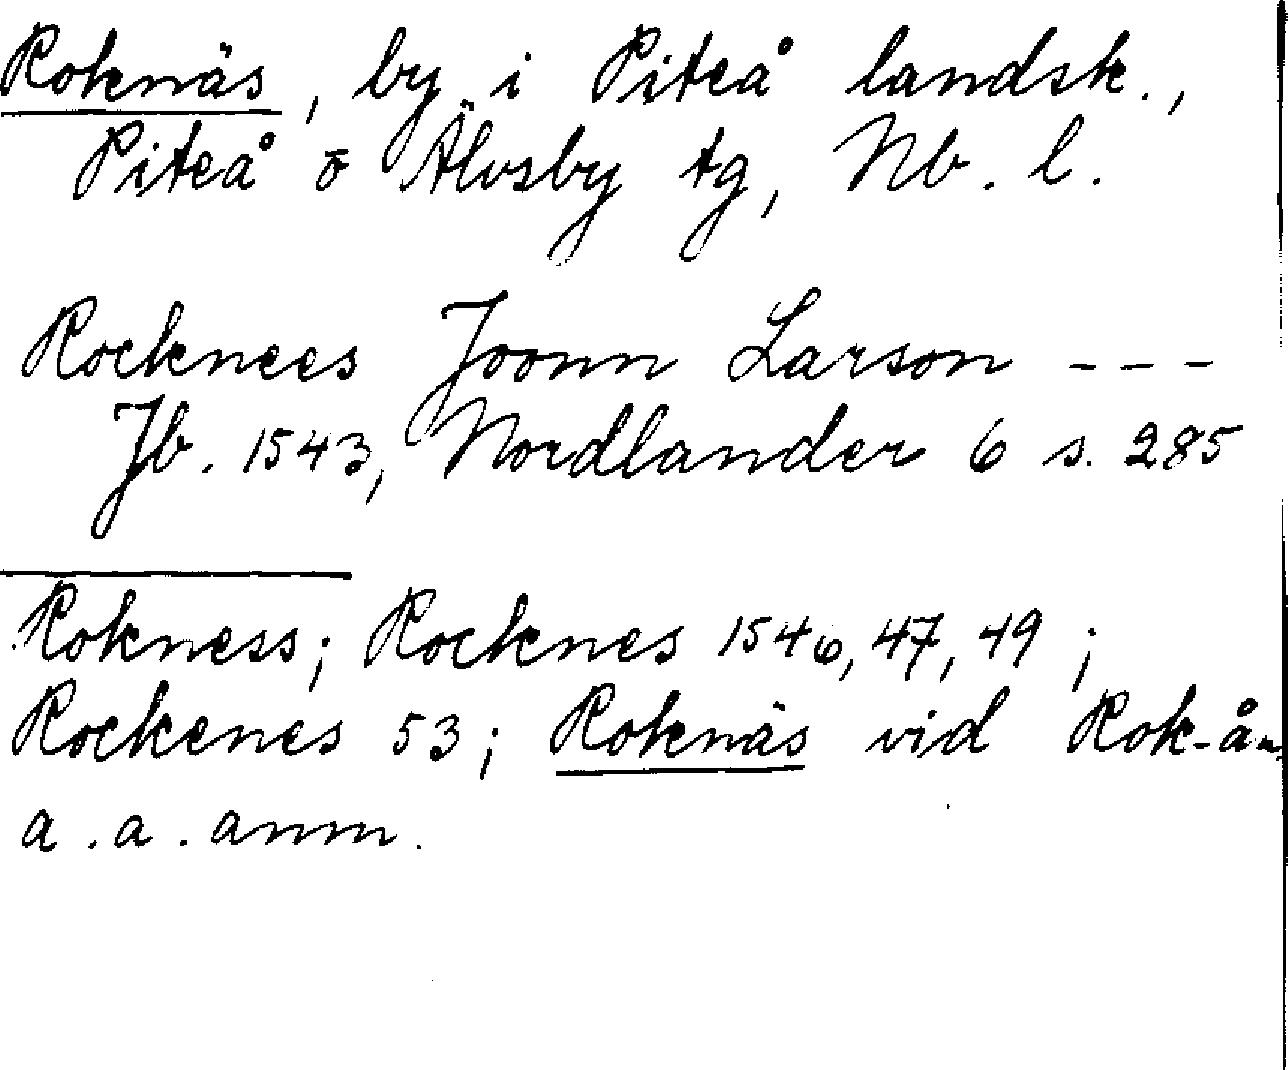 Roknäs, by i Piteå landsk.,
Piteå o Älvsby tg, Nb. l.
Rocknees Joonn Larson ---
Jb. 1543, Nordlander 6 s. 285
Rokness; Rocknes 1546, 47, 49;
Rockenes 53; Roknäs vid Rok-ån,
a. a. anm.